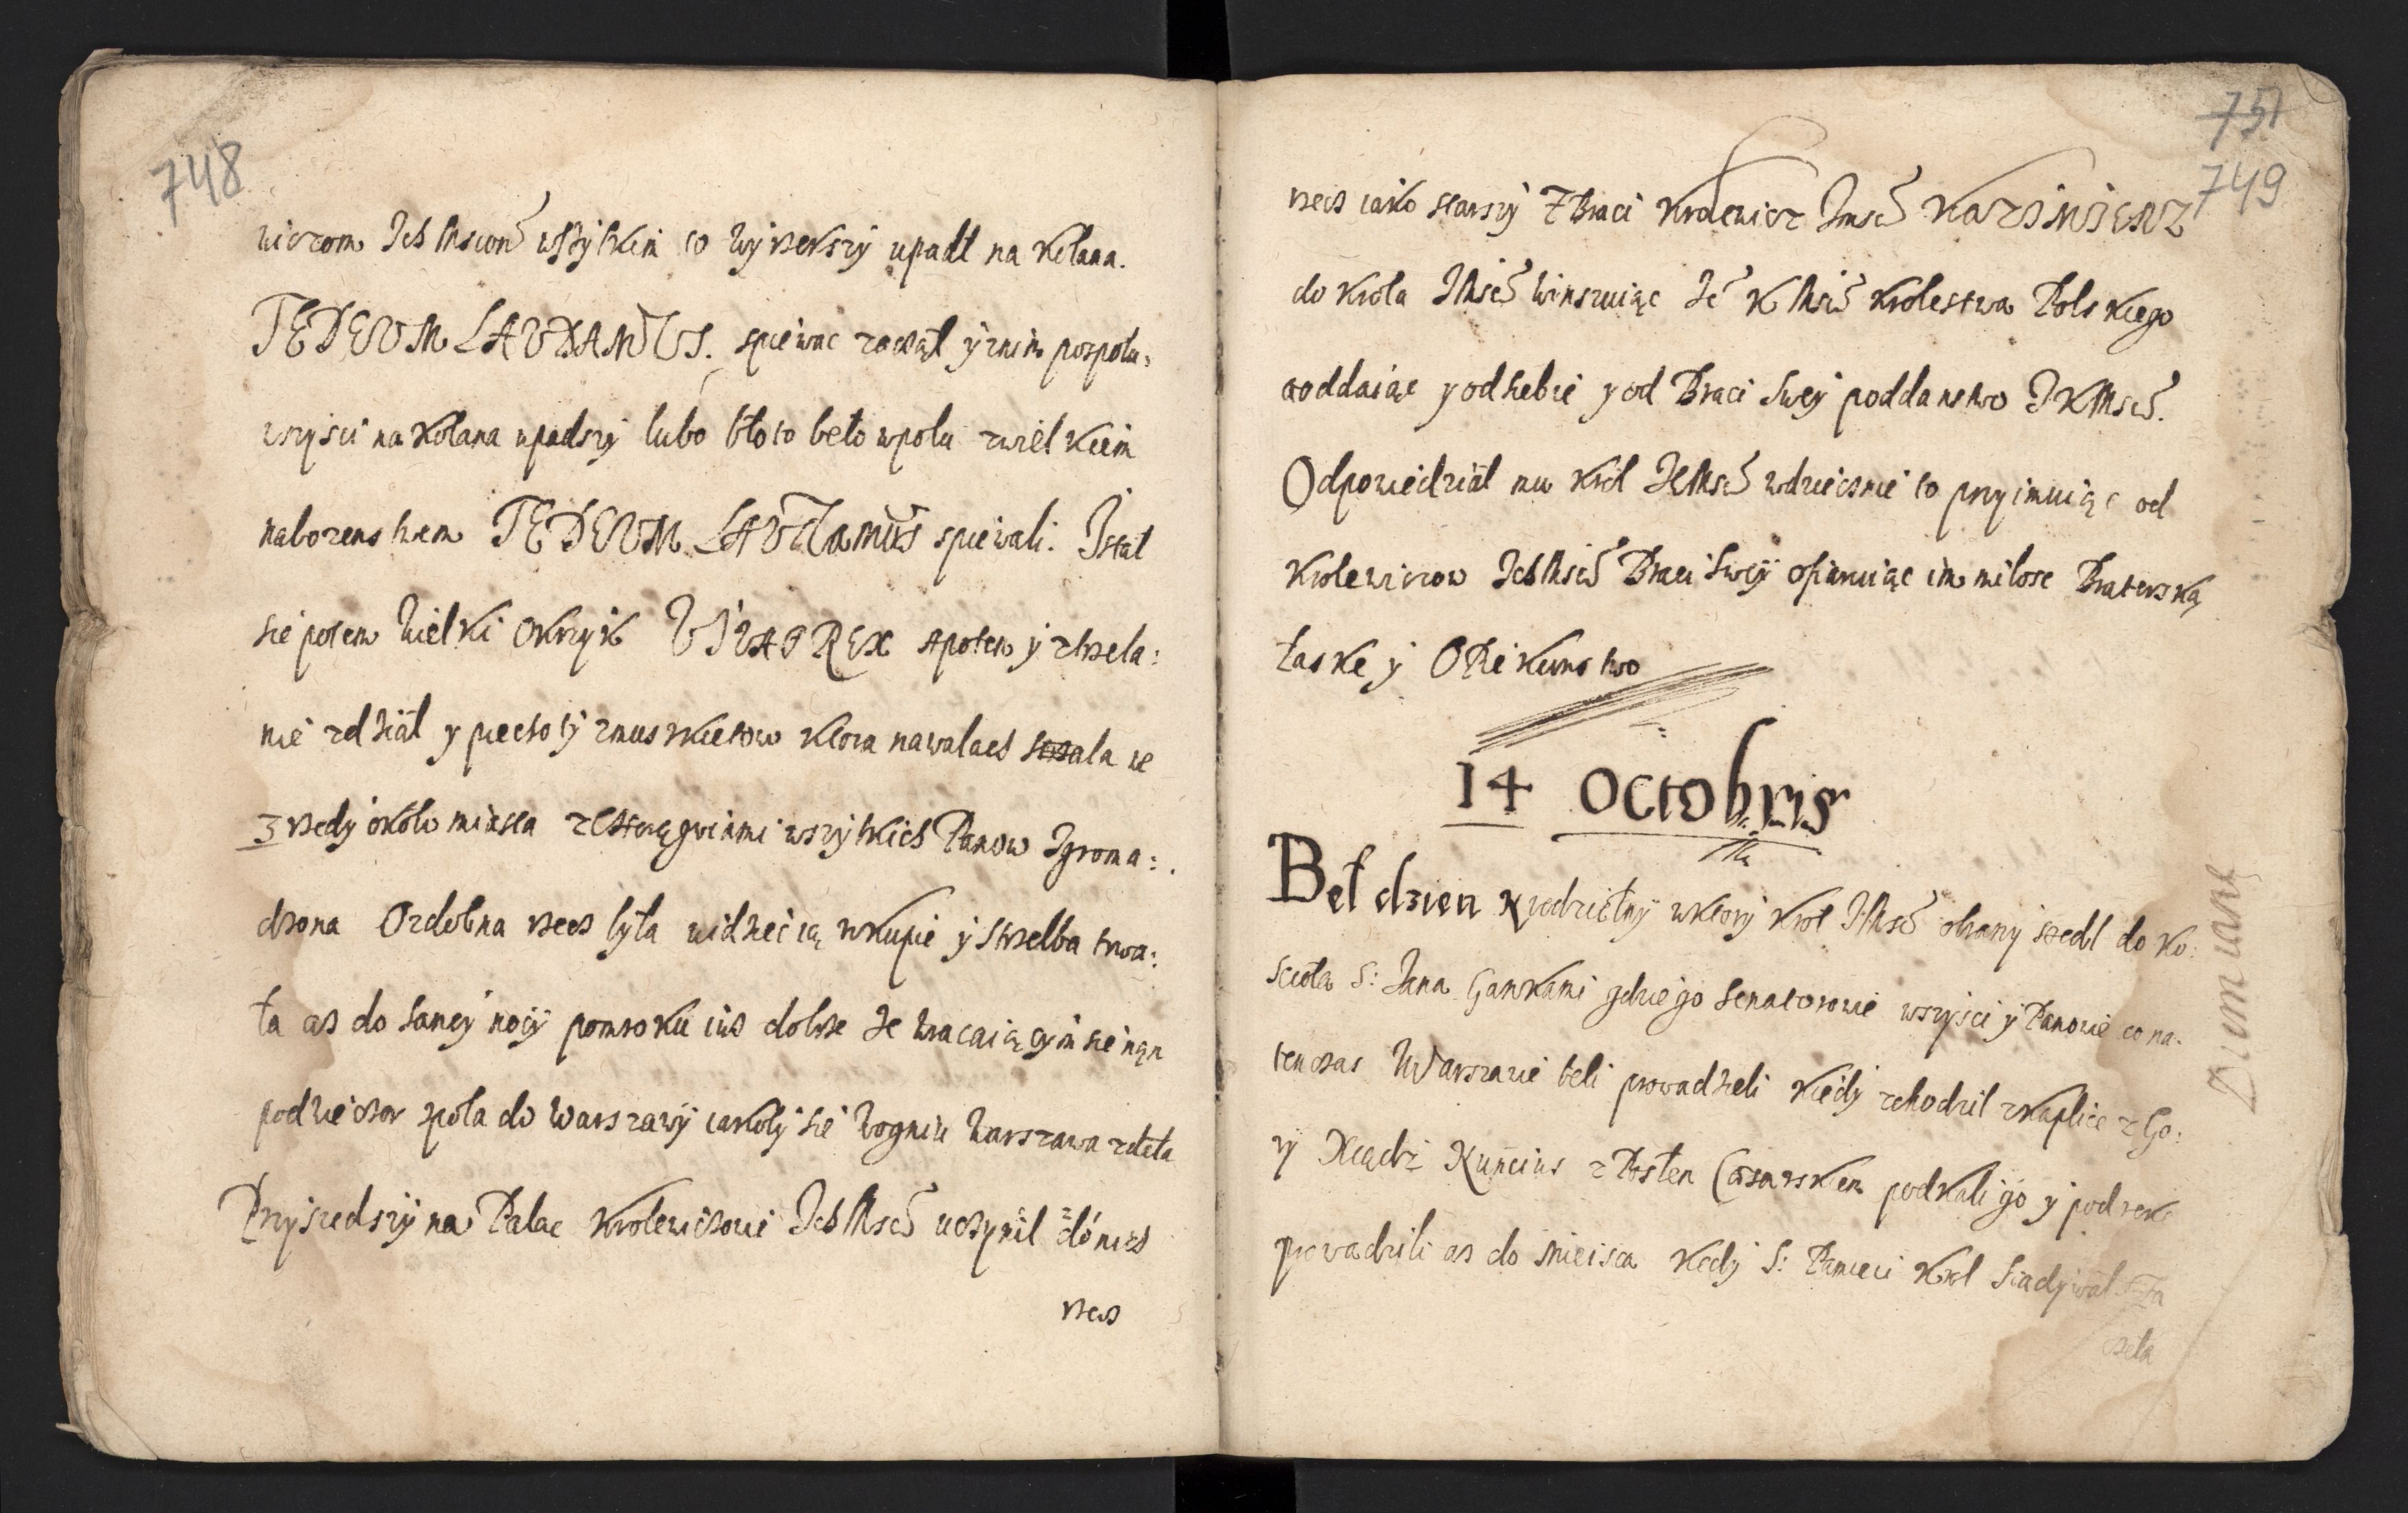 748
wiczom Ich Msciom wszytkim co wyrzekszy upadł na kolana.
TE DEUM LAUDAMUS. spiewac zaczął y znim pospołu,
wszysci na kolana upadszy lubo błoto beło wpolu zwielkiem
nabozenstwem TE DEUM LAUDamus spiewali. Jstał
sie potem Wielki Okrzyk VIVAT REX Apotem y strzela:
nie zdział y piechoty zmuszkietow ktora nawalach stała we
3 rzedy około miasta zChorągwiami wszytkich Panow Zgroma:
dzona Ozdobna rzecz była widziec ią wkupie y Strzelba trwa:
ła as do samey nocy pomroku ius dobrze ze wracaiącym sie
podwieczor spola do Warszawy iakoby sie Wogniu Warszawa zdała
Przyszedszy na Palac Krolewiczowi Ich Msciow uczynił do niego
rzecz
751
749
rzecz iako starszy Z Braci Krolewicz Jmsc KAZIMIERZ
do Krola JMsci winszuiąc Je K Msci Krolestwa Polskiego
aoddaiąc y odsiebie y od Braci Swey poddanstwo JKMsci.
Odpowiedział mu Krol JeMsc wdziecznie to przyimuiąc od
Krolewiczow Ich Msciow Braci Swey ofiaruiąc im milosc Braterską
łaske y Opiekunstwo
14 Octobris
Beł dzien Niedzielny wktory Krol JMsc obrany szedl do Ko:
scioła S: Jana Gankami gdzie go Senatorowie wszysci y Panowie co na
tenczas W Warszawie beli prowadzieli Kiedy schodzil zkaplice z Go:
ry Xiądz Nuncius z Posłem Cesarskem podkali go y podreke
prowadzili as do Mieisca Kedy S: Pamieci Krol siadywał Za
Dumiane